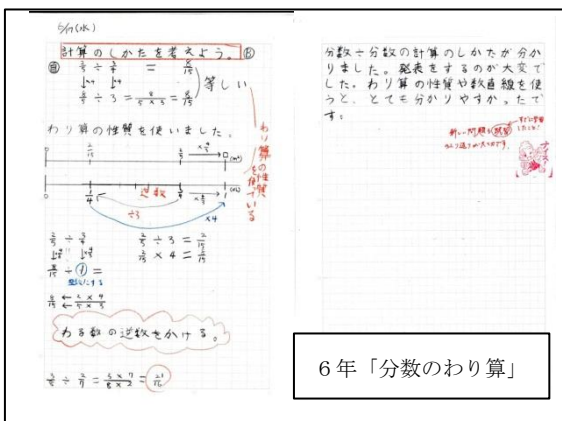 5/17(水)
計算のしかたを考えよう。 B
自 2/5 ÷ 3/4 = 8/15
↓×4 ↓×4
8/5 ÷ 3 = 8/5×3 = 8/15
等しい
わり算の性質を使っている
わり算の性質を使いました。
0 2/15 2/5 □ (m²)
0 1/4 3/4 1 (dL)
逆数
÷3
×4
2/5 ÷ 3/4
2/5 ÷ 3 = 2/15
2/15 × 4 = 8/15
8/15 ÷ 1 =
8/15 ← 2×4
← 5×3
わる数の逆数をかける。
3/8 ÷ 2/7 = 3×7/8×2 = 21/16
分数÷分数の計算のしかたが分か
りました。発表をするのが大変で
した。わり算の性質や数直線を使
うと、とても分かりやすかったで
す。
新しい問題も既習
ふり返りが大切です。
6年「分数のわり算」